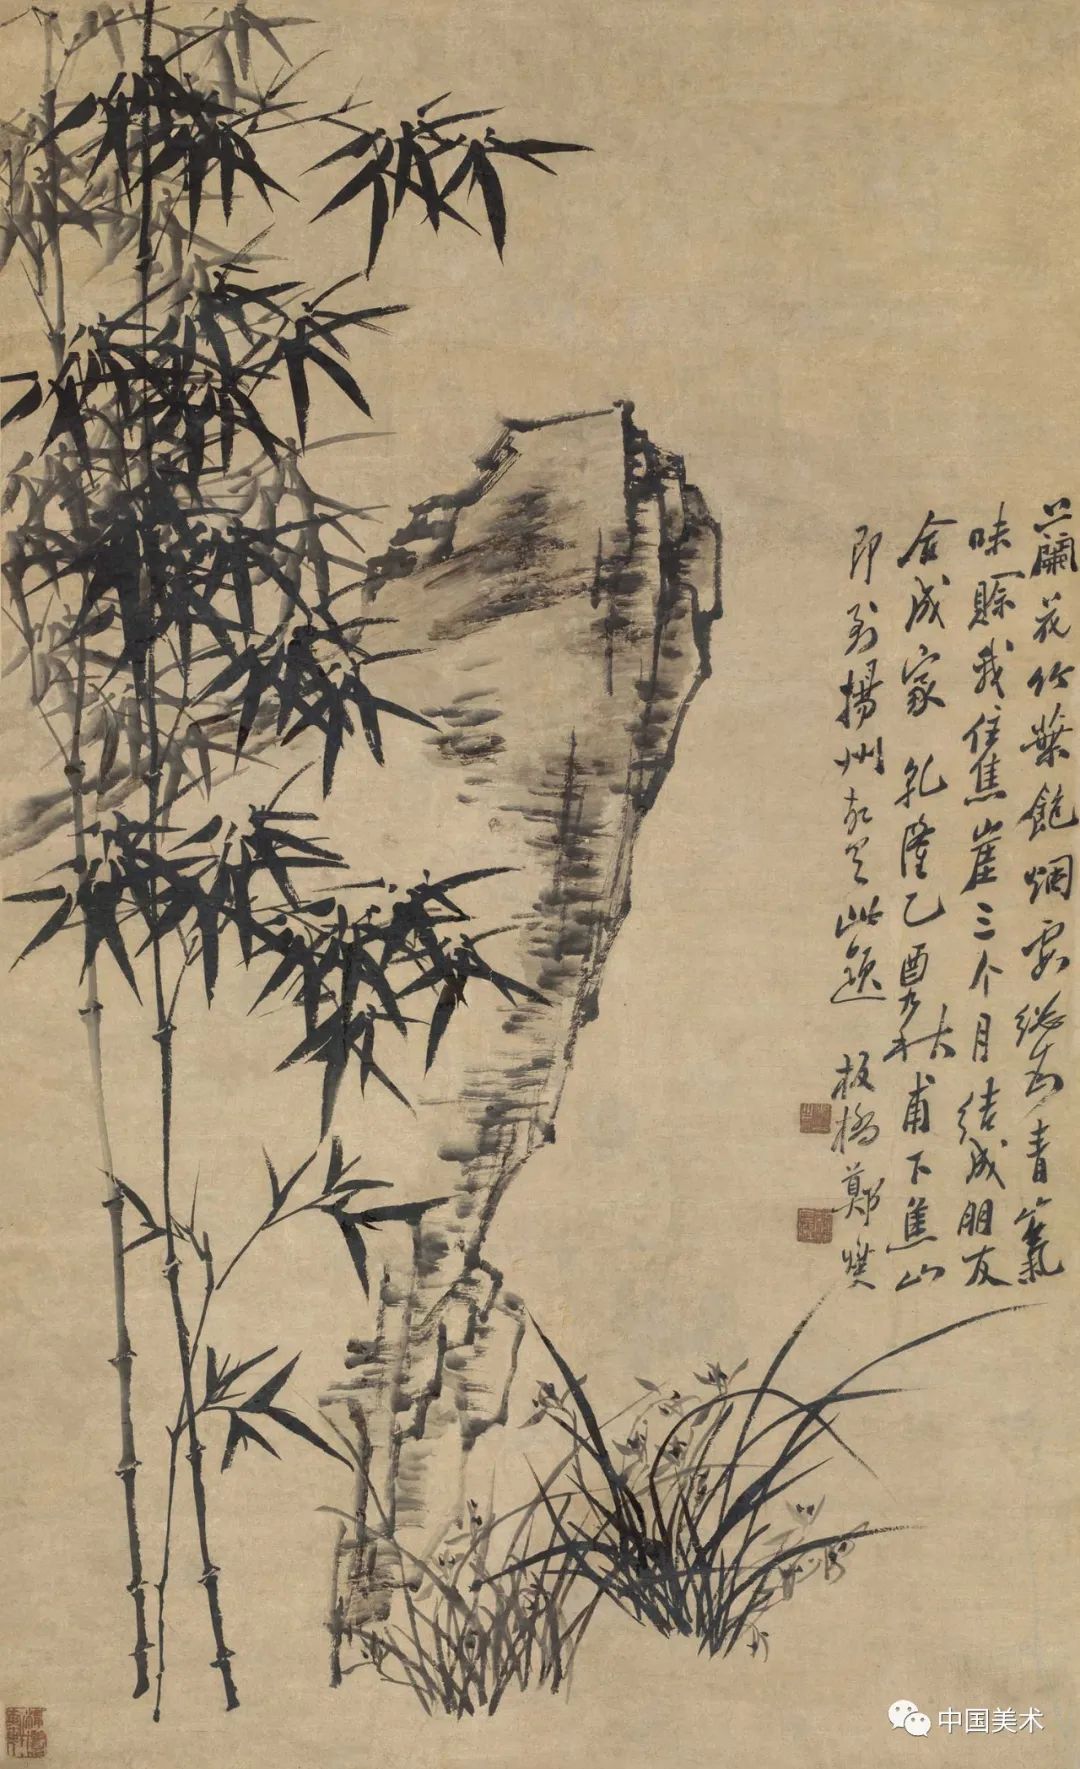 蘭花竹葉飽烟總青氣
味賒我住焦崖三个月結成朋友
合成家 乹隆乙酉秋甫下焦山
即到揚州故此題 板橋鄭燮
中国美术